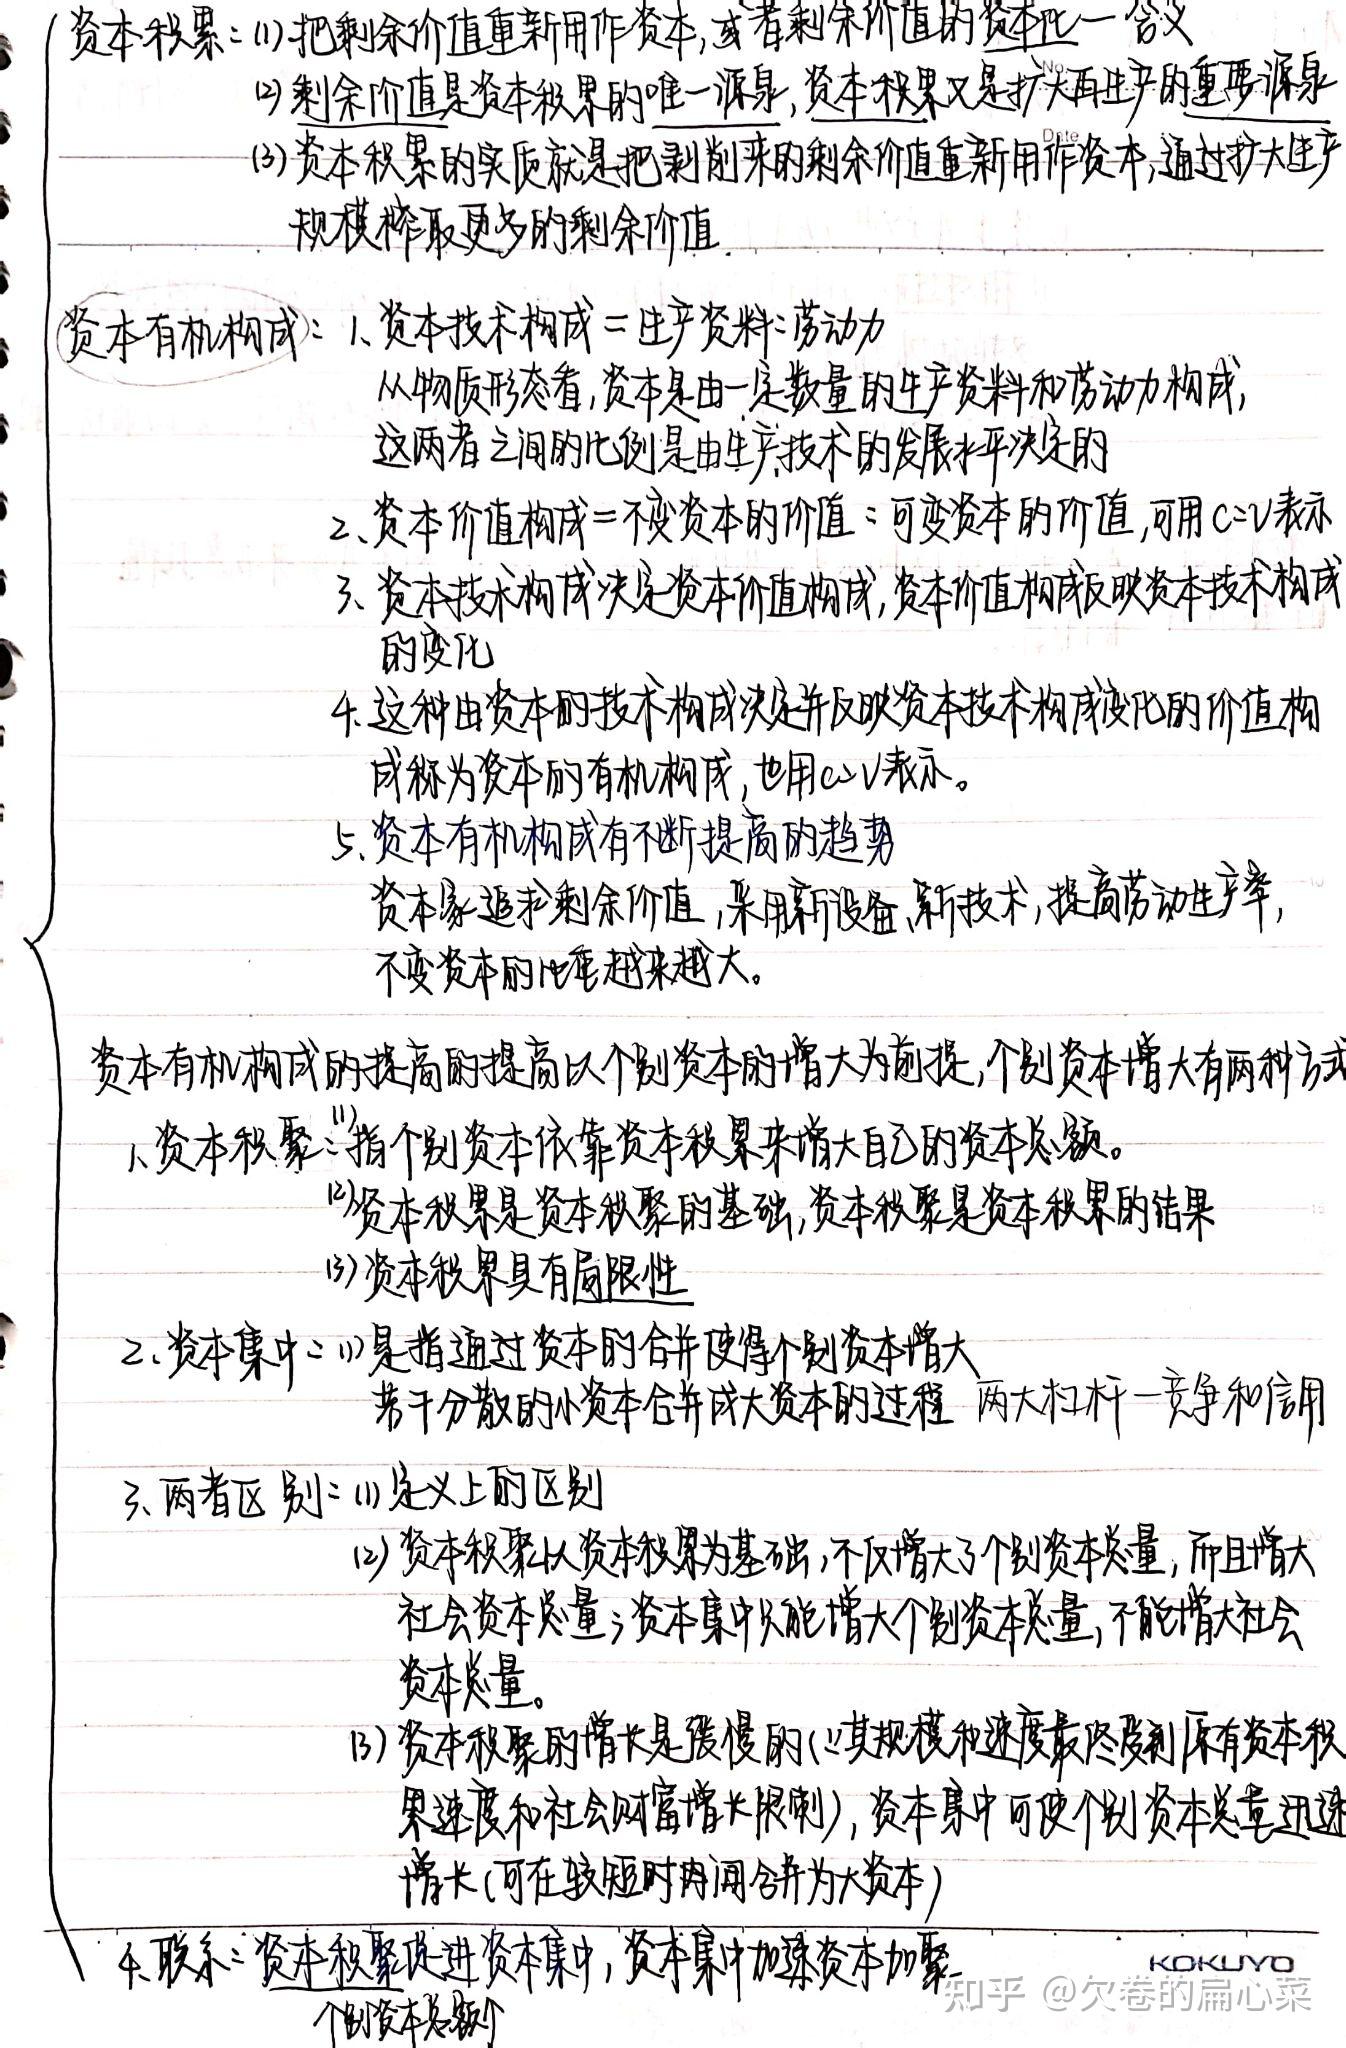 资本积累:(1)把剩余价值重新用作资本,或者剩余价值的资本化—含义
No.
(2)剩余价值是资本积累的唯一源泉,资本积累又是扩大再生产的重要源泉
Date
(3)资本积累的实质就是把剥削来的剩余价值重新用作资本,通过扩大生产
规模榨取更多的剩余价值
资本有机构成:1、资本技术构成=生产资料:劳动力
从物质形态看,资本是由一定数量的生产资料和劳动力构成,
这两者之间的比例是由生产技术的发展水平决定的
2、资本价值构成=不变资本的价值:可变资本的价值,可用C:V表示
3、资本技术构成决定资本价值构成,资本价值构成反映资本技术构成
的变化
4、这种由资本的技术构成决定并反映资本技术构成变化的价值构
成称为资本的有机构成,也用C:V表示。
5、资本有机构成有不断提高的趋势
资本家追求剩余价值,采用新设备、新技术,提高劳动生产率,
不变资本的比重越来越大。
资本有机构成的提高的提高以个别资本的增大为前提,个别资本增大有两种方式
1、资本积聚:(1)指个别资本依靠资本积累来增大自己的资本总额。
(2)资本积累是资本积聚的基础,资本积聚是资本积累的结果
(3)资本积累具有局限性
2、资本集中:(1)是指通过资本的合并使得个别资本增大
若干分散的小资本合并成大资本的过程 两大杠杆—竞争和信用
3、两者区别:(1)定义上的区别
(2)资本积聚以资本积累为基础,不仅增大了个别资本总量,而且增大
社会资本总量;资本集中只能增大个别资本总量,不能增大社会
资本总量。
(3)资本积聚的增长是缓慢的(∵其规模和速度最终受到原有资本积
累速度和社会财富增长限制),资本集中可使个别资本总量迅速
增长(可在较短时内间合并为大资本)
4、联系:资本积聚促进资本集中,资本集中加速资本加聚
个别资本总额个
KOKUYO
知乎 @欠卷的扁心菜